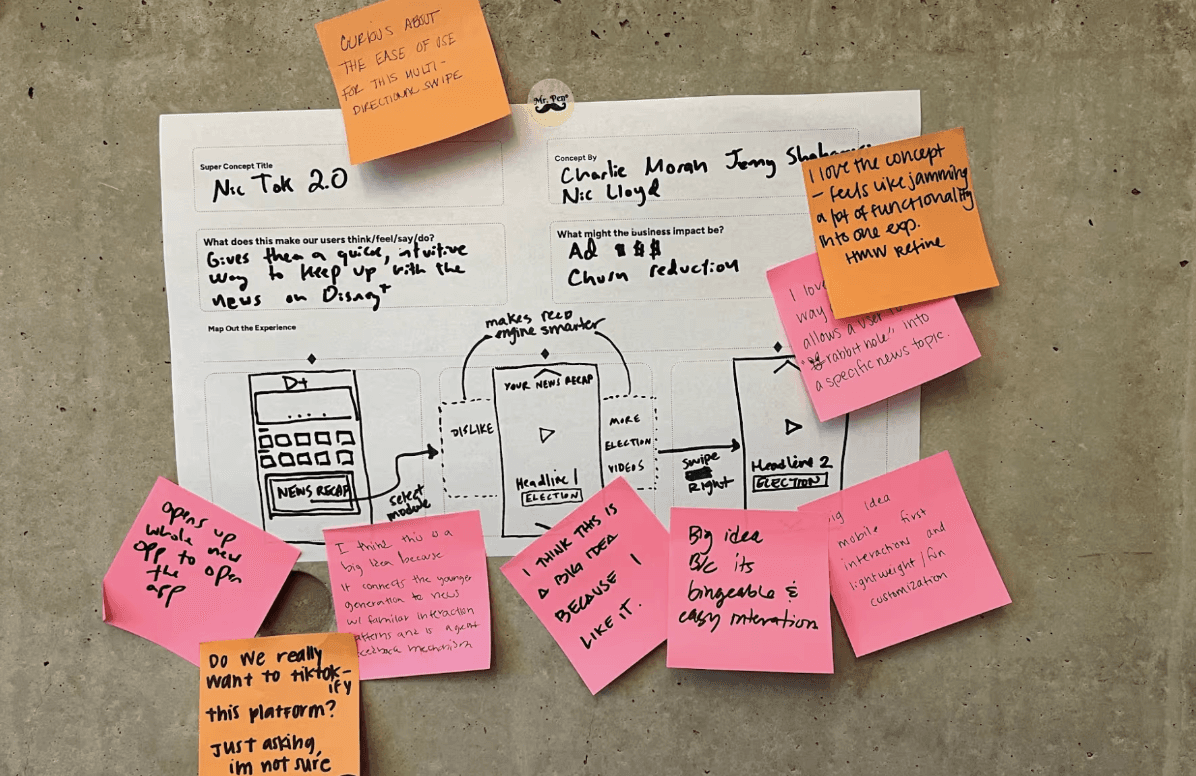 CURIOUS ABOUT
THE EASE OF USE
FOR THIS MULTI-
DIRECTIONAL SWIPE
Mr. Pen
Super Concept Title
Nic Tok 2.0
Concept By
Charlie Moran Jenny
Nic Lloyd
What does this make our users think/feel/say/do?
Gives them a quick, intuitive
way to keep up with the
news on Disney+
What might the business impact be?
Ad $ $ $
Churn reduction
I love the concept
- feels like jamming
a lot of functionality
into one exp.
HMW Refine
I love
way
allows a user to
"rabbit hole" into
a specific news topic.
Map Out the Experience
makes reco
engine smarter
D+
....
NEWS RECAP
select
module
DISLIKE
YOUR NEWS RECAP
Headline 1
ELECTION
MORE
ELECTION
VIDEOS
swipe
Right
Headline 2
ELECTION
opens up
whole new
opp to open
the
app
I think this is a
big idea because
it connects the younger
generation to news
w/ familiar interaction
patterns and is a great
feedback mechanism
I THINK THIS IS
A BIG IDEA
BECAUSE I
LIKE IT.
Big idea
B/c its
bingeable &
easy interation
big idea
mobile first
interactions and
lightweight/fun
customization
Do we really
want to tiktok-
ify
this platform?
Just asking,
im not sure